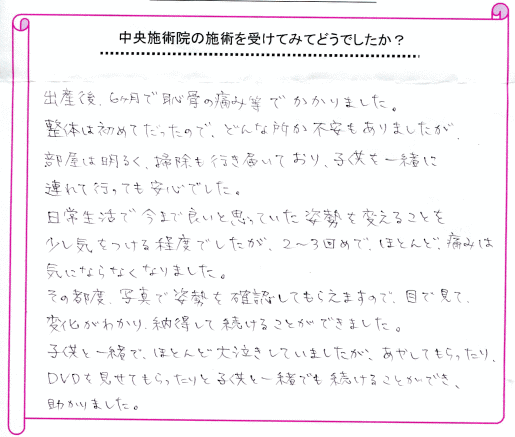 中央施術院の施術を受けてみてどうでしたか？
出産後、6ヶ月で恥骨の痛み等でかかりました。
整体は初めてだったので、どんな所か不安もありましたが、
部屋は明るく、掃除も行き届いており、子供も一緒に
連れて行っても安心でした。
日常生活で今まで良いと思っていた姿勢を変えることを
少し気をつける程度でしたが、2〜3回めで、ほとんど、痛みは
気にならなくなりました。
その都度、写真で姿勢を確認してもらえますので、目で見て、
変化がわかり、納得して続けることができました。
子供と一緒で、ほとんど大泣きしていましたが、あやしてもらったり、
DVDを見せてもらったりと子供と一緒でも続けることができ、
助かりました。